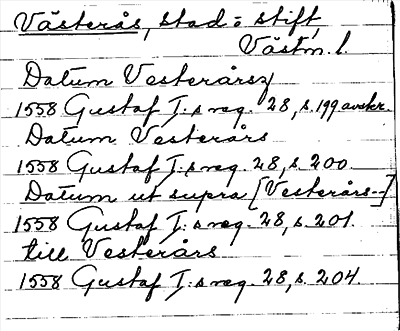 Västerås, stad o stift,
Västm. l.
Datum Vesterårsz
1558 Gustaf I:s reg. 28, s. 199 avskr.
Datum Vesterårs
1558 Gustaf I:s reg. 28, s. 200.
Datum ut supra [Vesterårs--]
1558 Gustaf I:s reg. 28, s. 201.
till Vesterårs
1558 Gustaf I:s reg. 28, s. 204.